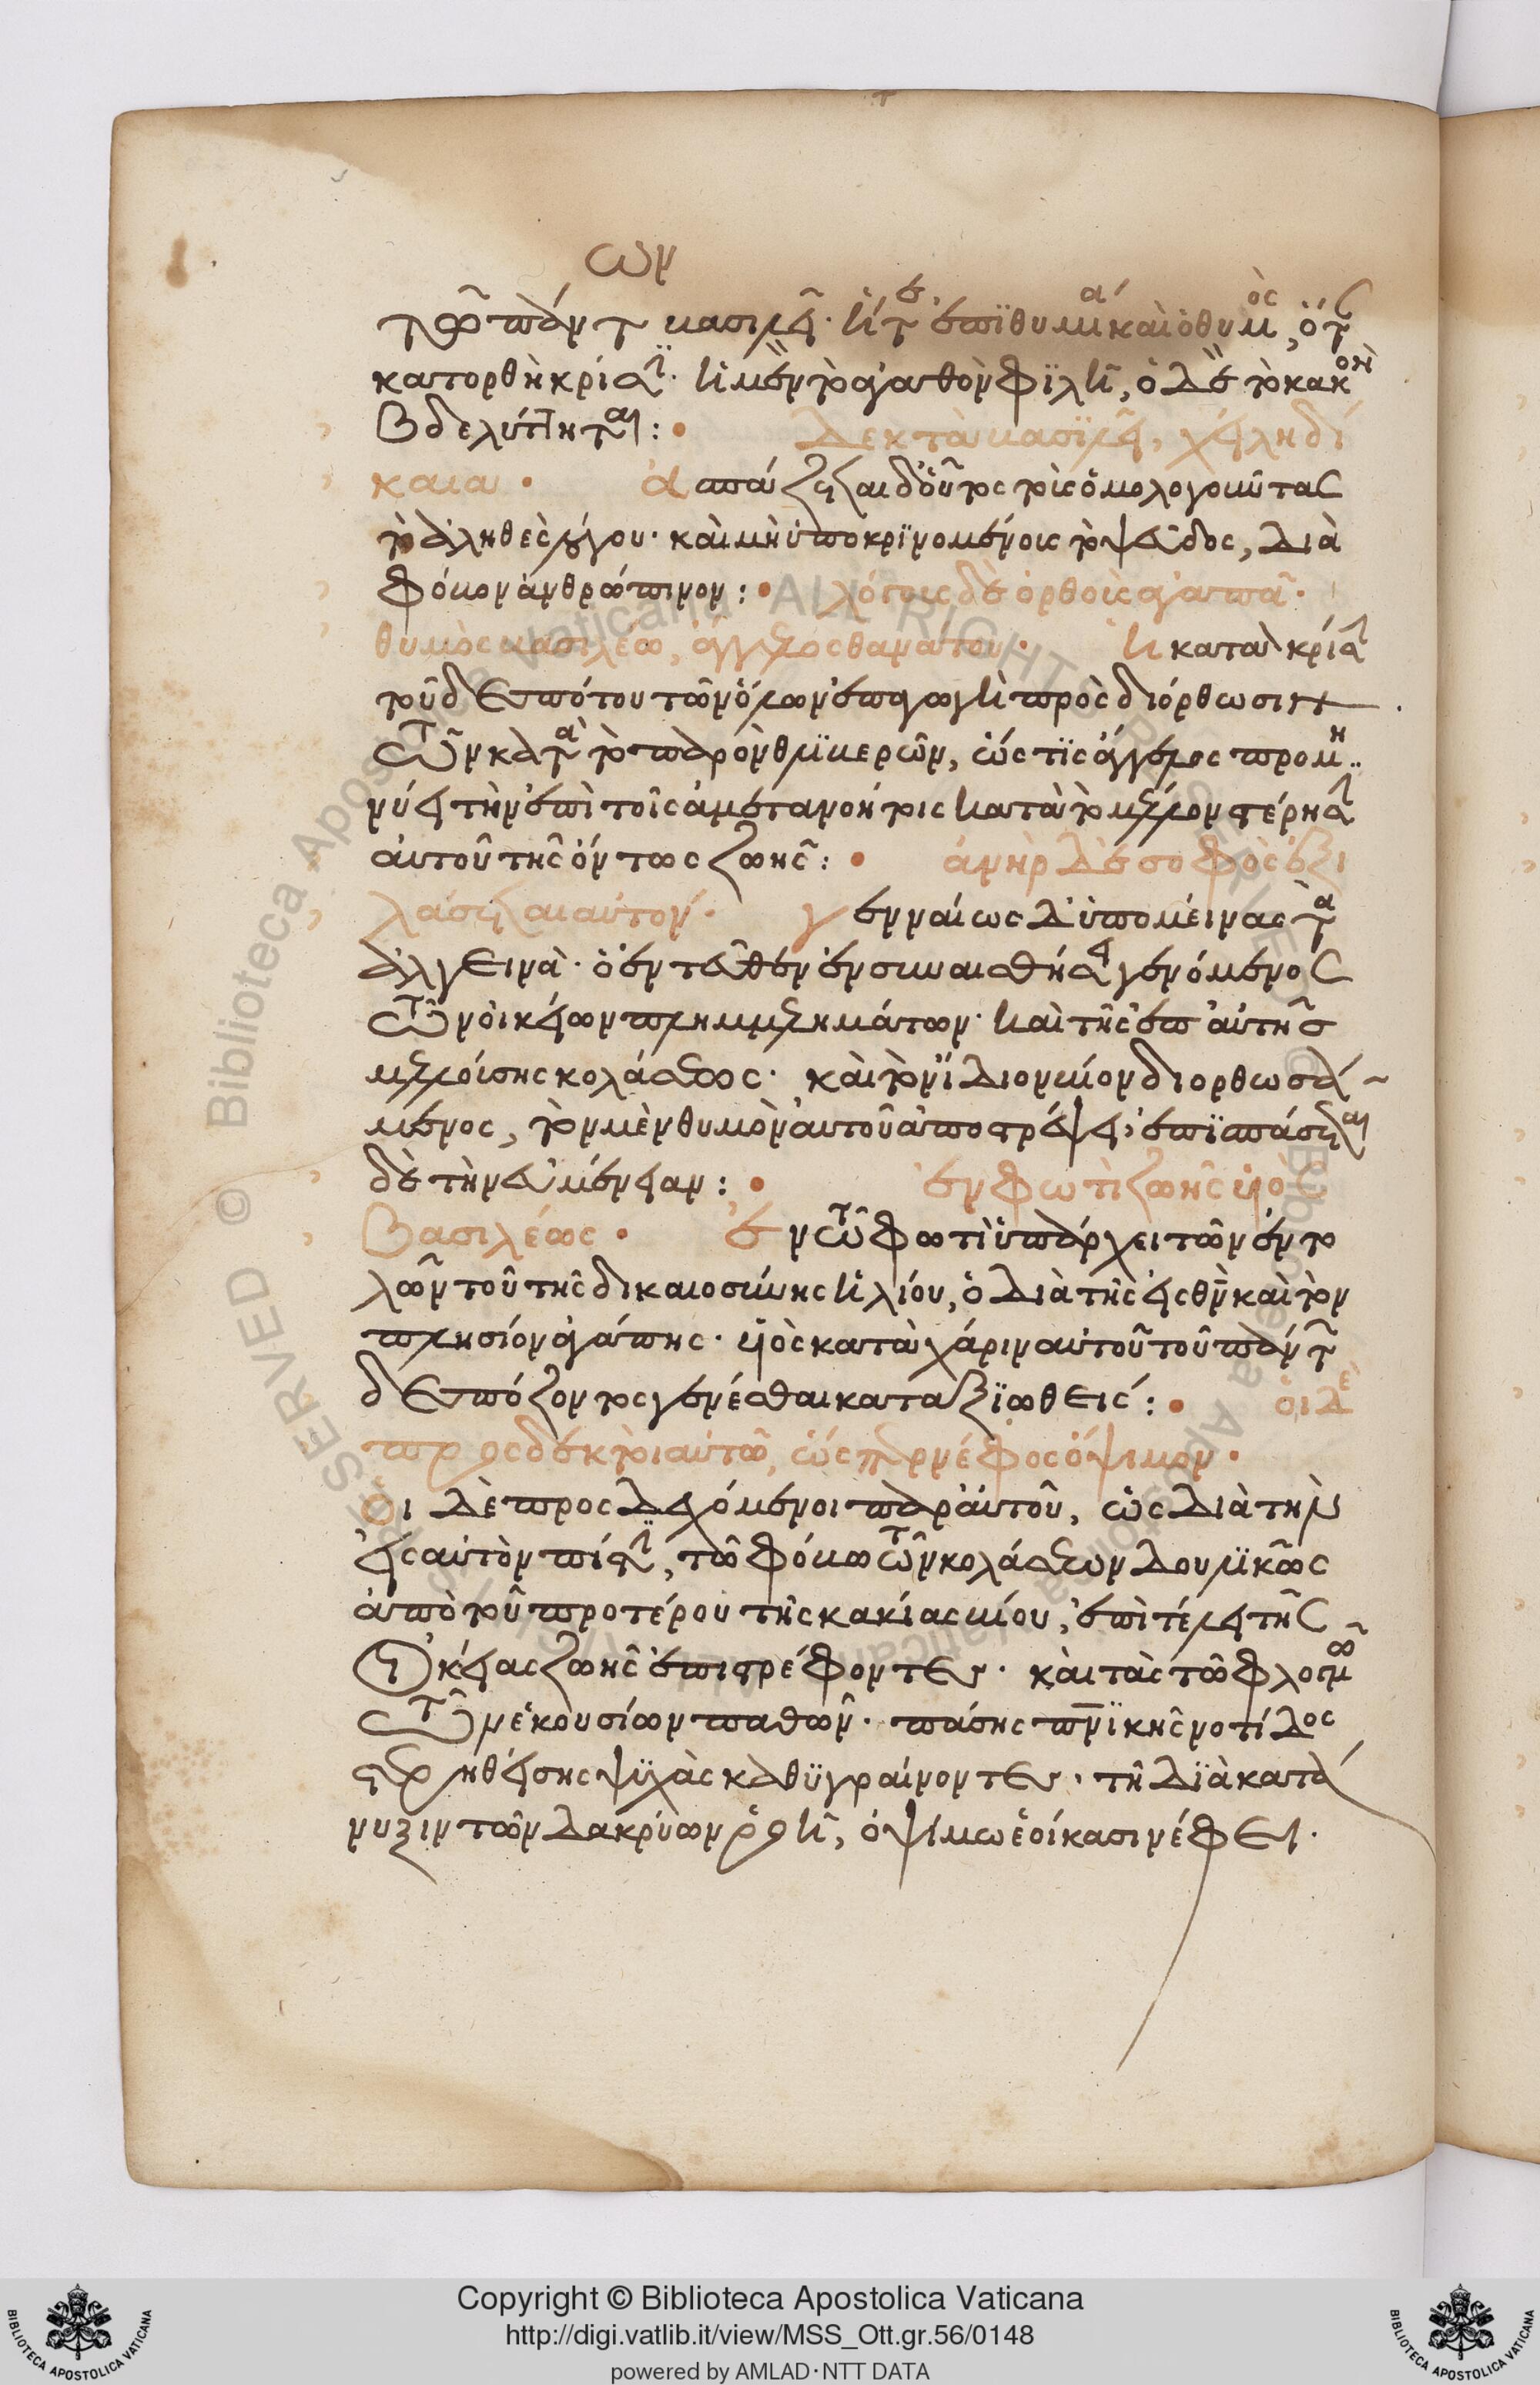 τῶν πάντων βασιλεῖ. ἥ τε ἐπιθυμία καὶ ὁ θυμὸς, ὅτε
κατορθὴ κρίσει. ἡ μὲν τὸ ἀγαθὸν φιλῆ, ὁ δὲ τὸ κακὸν
βδελύττηται:
δεκτὰ βασιλεῖ, χείλη δί
καια. ἀσπάζεσθαι δεῖ τοὺς ὁμολογοῦντας
τὸ ἀληθὲς λόγου. καὶ μὴ ὑποκρινομένοις τὸ ψεῦδος, διὰ
φόβον ἀνθρώπινον: λόγους δὲ ὀρθοὺς ἀγαπᾶ.
θυμὸς βασιλέως, ἄγγελος θανάτου. ἡ κατάκρισις
τοῦ δεσπότου τῶν ὅλων ἐπαγωγὴ πρὸς διόρθωσιν
τῶν κατὰ τὸ παρὸν θλιβερῶν, ὥς τις ἄγγελος προμη
νύει τὴν ἐπὶ τοῖς ἀμετανοήτοις κατὰ τὸ μέλλον στέρησιν
αὐτοῦ τῆς ὄντως ζωῆς: ἀνὴρ δὲ σοφὸς ἐξι
λάσεται αὐτόν. γενναίως δ' ὑπομείνας τὰ
ἀλγεινὰ. ὁ ἐντεῦθεν ἐν συναισθήσει γενόμενος
τῶν οἰκείων πλημμελημάτων. καὶ τῆς ἐπ' αὐτῆς
μελλούσης κολάσεως. καὶ τὸν ἴδιον βίον διορθωσά
μενος, τὸν μὲν θυμὸν αὐτοῦ ἀποστρέψει, ἐπισπάσεται
δὲ τὴν εὐμένειαν: ἐν φωτὶ ζωῆς υἱὸς
βασιλέως. ἐν τῶ φωτὶ ὑπάρχει τῶν ἐντο
λῶν τοῦ τῆς δικαιοσύνης ἡλίου, ὁ διὰ τῆς εἰς θν καὶ τὸν
πλησίον ἀγάπης. υἱὸς κατὰ χάριν αὐτοῦ τοῦ πάντων
δεσπόζοντος γενέσθαι καταξιωθείς: οἱ δὲ
προσδεκτοὶ αὐτῶ, ὥσπερ νέφος ὄψιμον.
Οἱ δὲ προσδεχόμενοι παρ' αὐτοῦ, ὡς διὰ τὴν
εἰς αὐτὸν πίστιν, τῶ φόβω τῶν κολάσεων δουλικῶς
ἀπὸ τοῦ προτέρου τῆς κακίας βίου, ἐπὶ τέλει τῆς
οἰκείας ζωῆς ἐπιστρέφοντες. καὶ τὰς τῶ φλογμῶ
τῶν ἑκουσίων παθῶν. πάσης πνικῆς νοτίδος
στερηθείσης ψυχὰς καθυγραίνοντες. τῆ διὰ κατα
νυξιν τῶν δακρύων ῥοῆ, ὀψίμω ἐοίκασι νέφει.
Copyright © Biblioteca Apostolica Vaticana
http://digi.vatlib.it/view/MSS_Ott.gr.56/0148
powered by AMLAD·NTT DATA